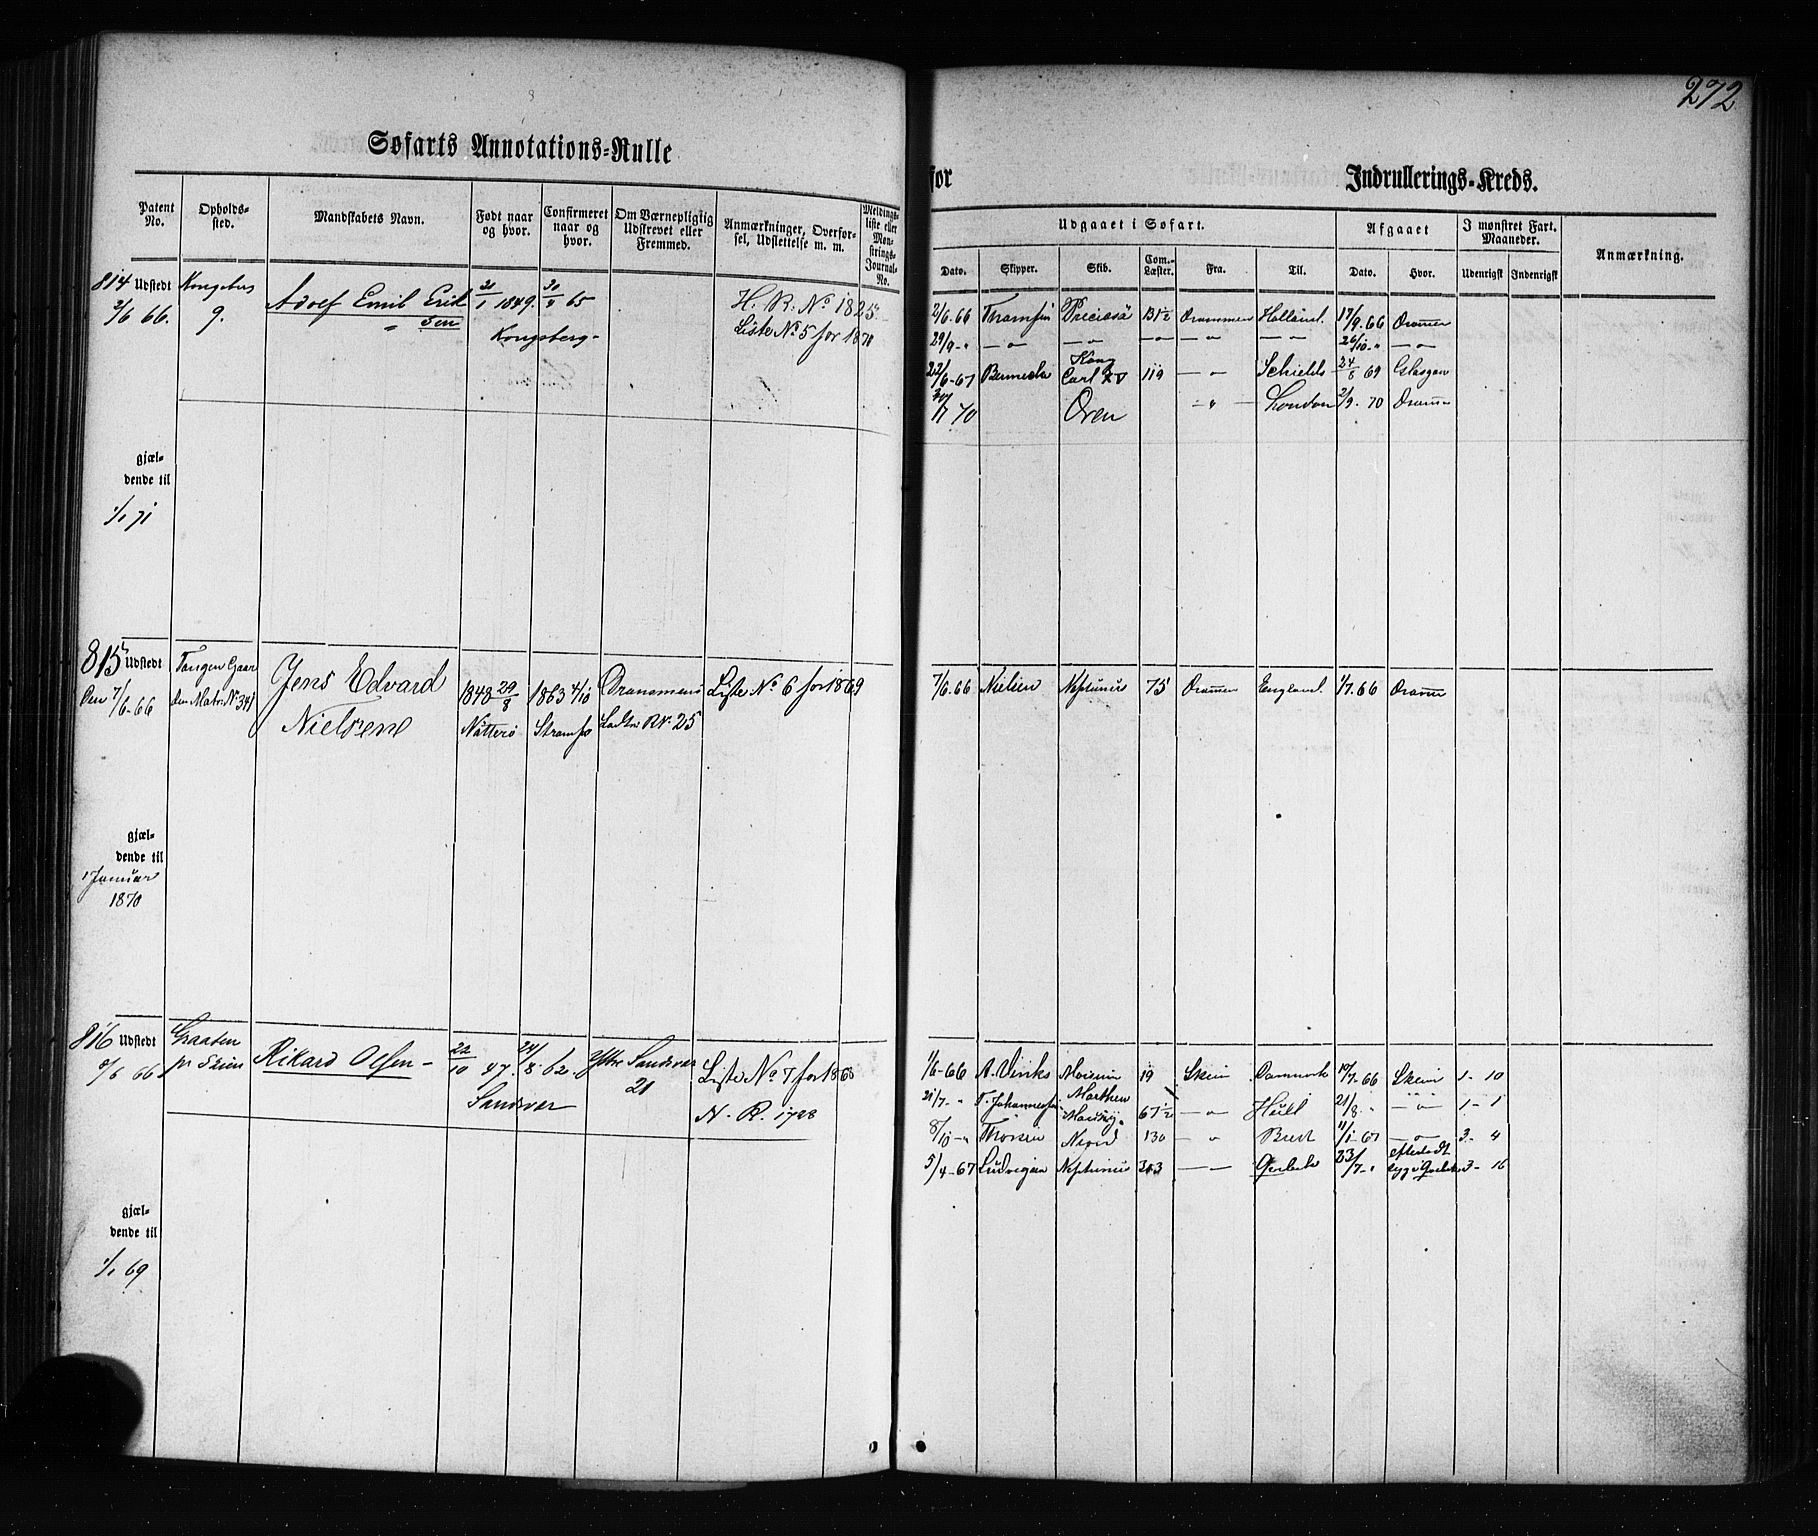 272
Søfarts Annotations-Rulle
for
Indrullerings-Kreds.
Patent No.
Opholds-sted.
Mandskabets Navn.
Født naar og hvor.
Confirmeret naar og hvor.
Om Værnepligtig Udskrevet eller Fremmed.
Anmærkninger, Overførsel, Udslettelse m. m.
Meldings-liste eller Mønstrings-Journal-No.
Udgaaet i Søfart.
Afgaaet
I mønstret Fart. Maaneder.
Anmærkning.
Dato. Skipper. Skib. Com.-Læster. Fra. Til. Dato. Hvor. Udenrigsk Indenrigsk
814 Udstedt Kongsberg Adolf Emil Erik- 21/1 1849. 65 H. R. No 1825
2/6 66. 9. sen Kongsberg- Liste No 5 for 1870
2/6.66 Præciosa 131½ Drammen Holland. 17/9.66 Dramen
29/9-„ —„— —„— —„— —„— —„— 26/10-„ —„—
22/6-67 Kong Carl XV 119 —„— Schields 24/8 69 Glasgow
70 Oren —„— London 2/9-70 Dramen
gjæl-
dende til
1/1 71
815 Udstedt Tangen Gaar- Jens Edvard 1848 29/8 1863 4/10 Drammens Liste No 6 for 1869
Den 7/6-66 den Matr. No 341 Nielsen Nøtterø Strømsø Ladn. R No. 25
7/6.66 Nielsen Neptunus 75 Dramen England. 1/7.66 Dramen
gjæl-
dende til
1 Januar
1870
816 Udstedt Graaten Rikard Olsen- 22/10 47. 24/8.62. Ytre Sandsvær Liste No 7 for 1868
66 pr Skien Sandsvær 21 N. R. 1728
1/6-66 A. 19 Skien Danmark 19/7.66 Skien 1- 10
21/7-„ T. Johannesen 67½ —„— Hull 21/8.„ —„— 1- 1
8/10-„ Thorsen 130 —„— Brest 11/1-67 —„— 3- 4
5/4-67 Ludvigsen Neptunus —„— Qvebek 23/7-„ efterladt syg i Qvebek 3- 16
gjæl-
dende til
1/1 69